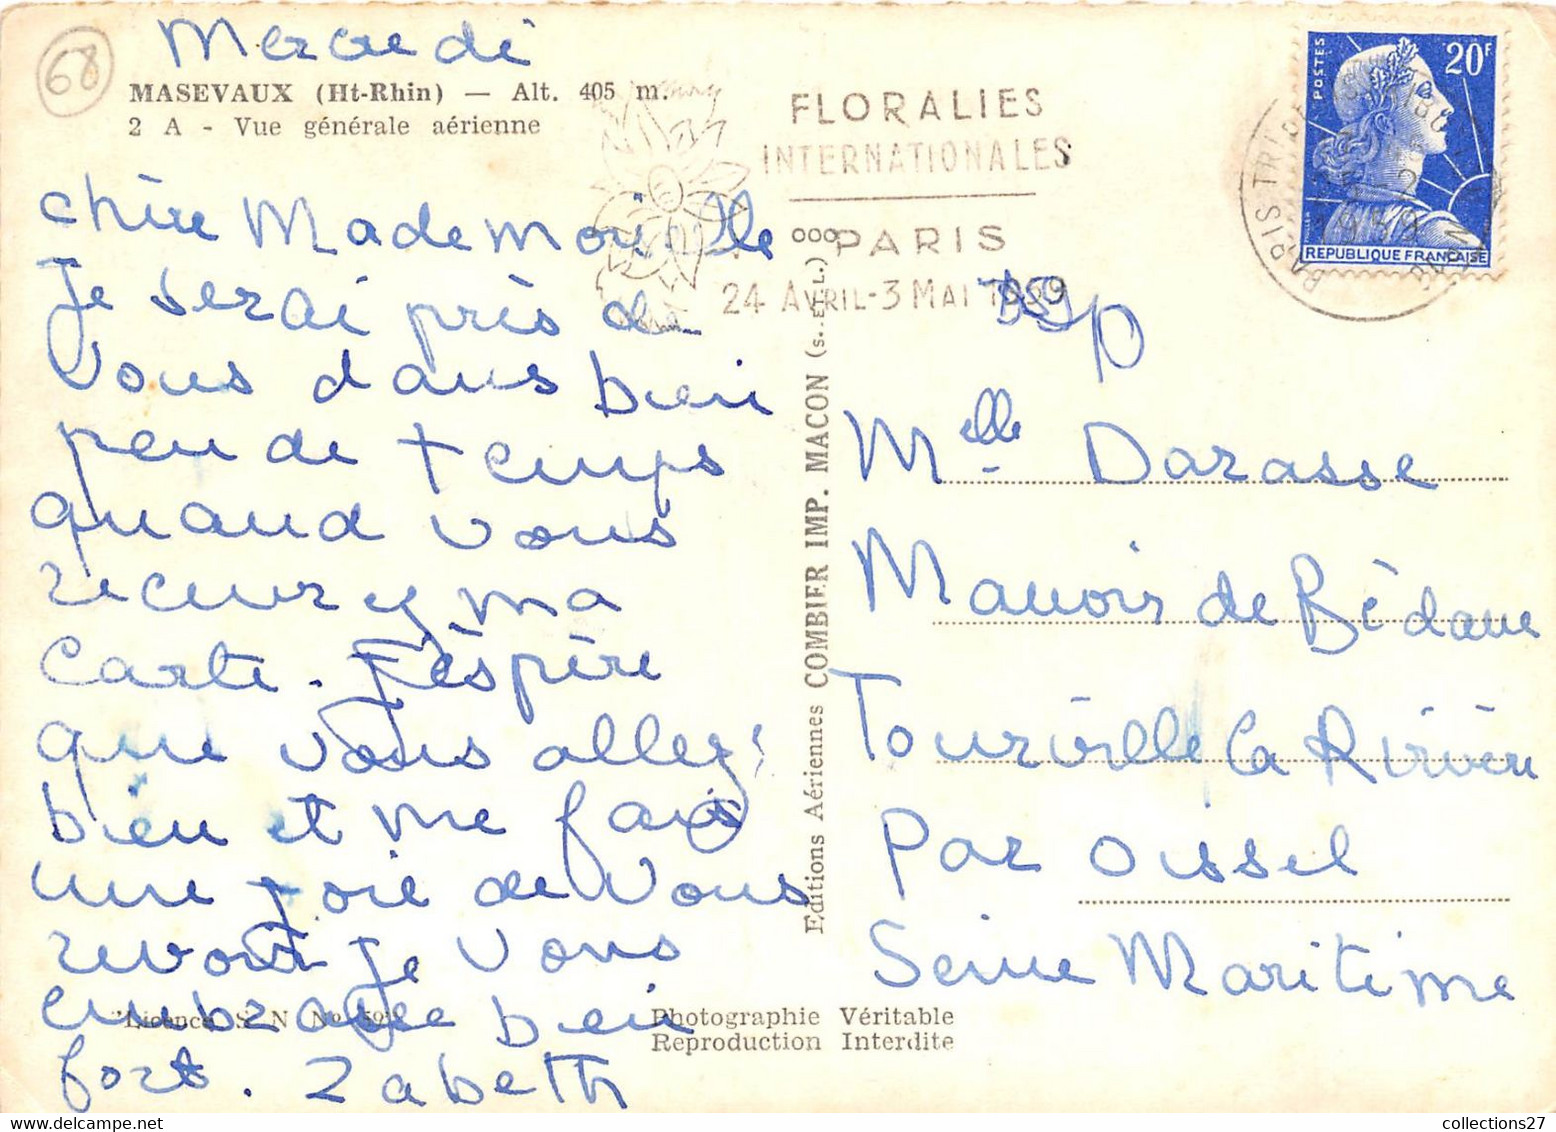 68
Mercredi
MASEVAUX (Ht-Rhin) — Alt. 405 m.
2 A - Vue générale aérienne
chère Mademoiselle
Je serai près de
vous dans bien
peu de temps
quand vous
recevrez ma
carte. J'éspère
que vous allez
bien et me fais
une joie de vous
revoir Je vous
embrasse bien
fort. Zabeth
"Licence S N N°
Photographie Véritable
Reproduction Interdite
Editions Aériennes COMBIER IMP. MACON (S. ET L.)
FLORALIES
INTERNATIONALES
PARIS
24 AVRIL-3 MAI 1959
POSTES
20F
REPUBLIQUE FRANÇAISE
PARIS TRI
1959
Melle Darasse
Manoir de Bèdane
Tourville la Rivière
Par Oissel
Seine Maritime
collections27